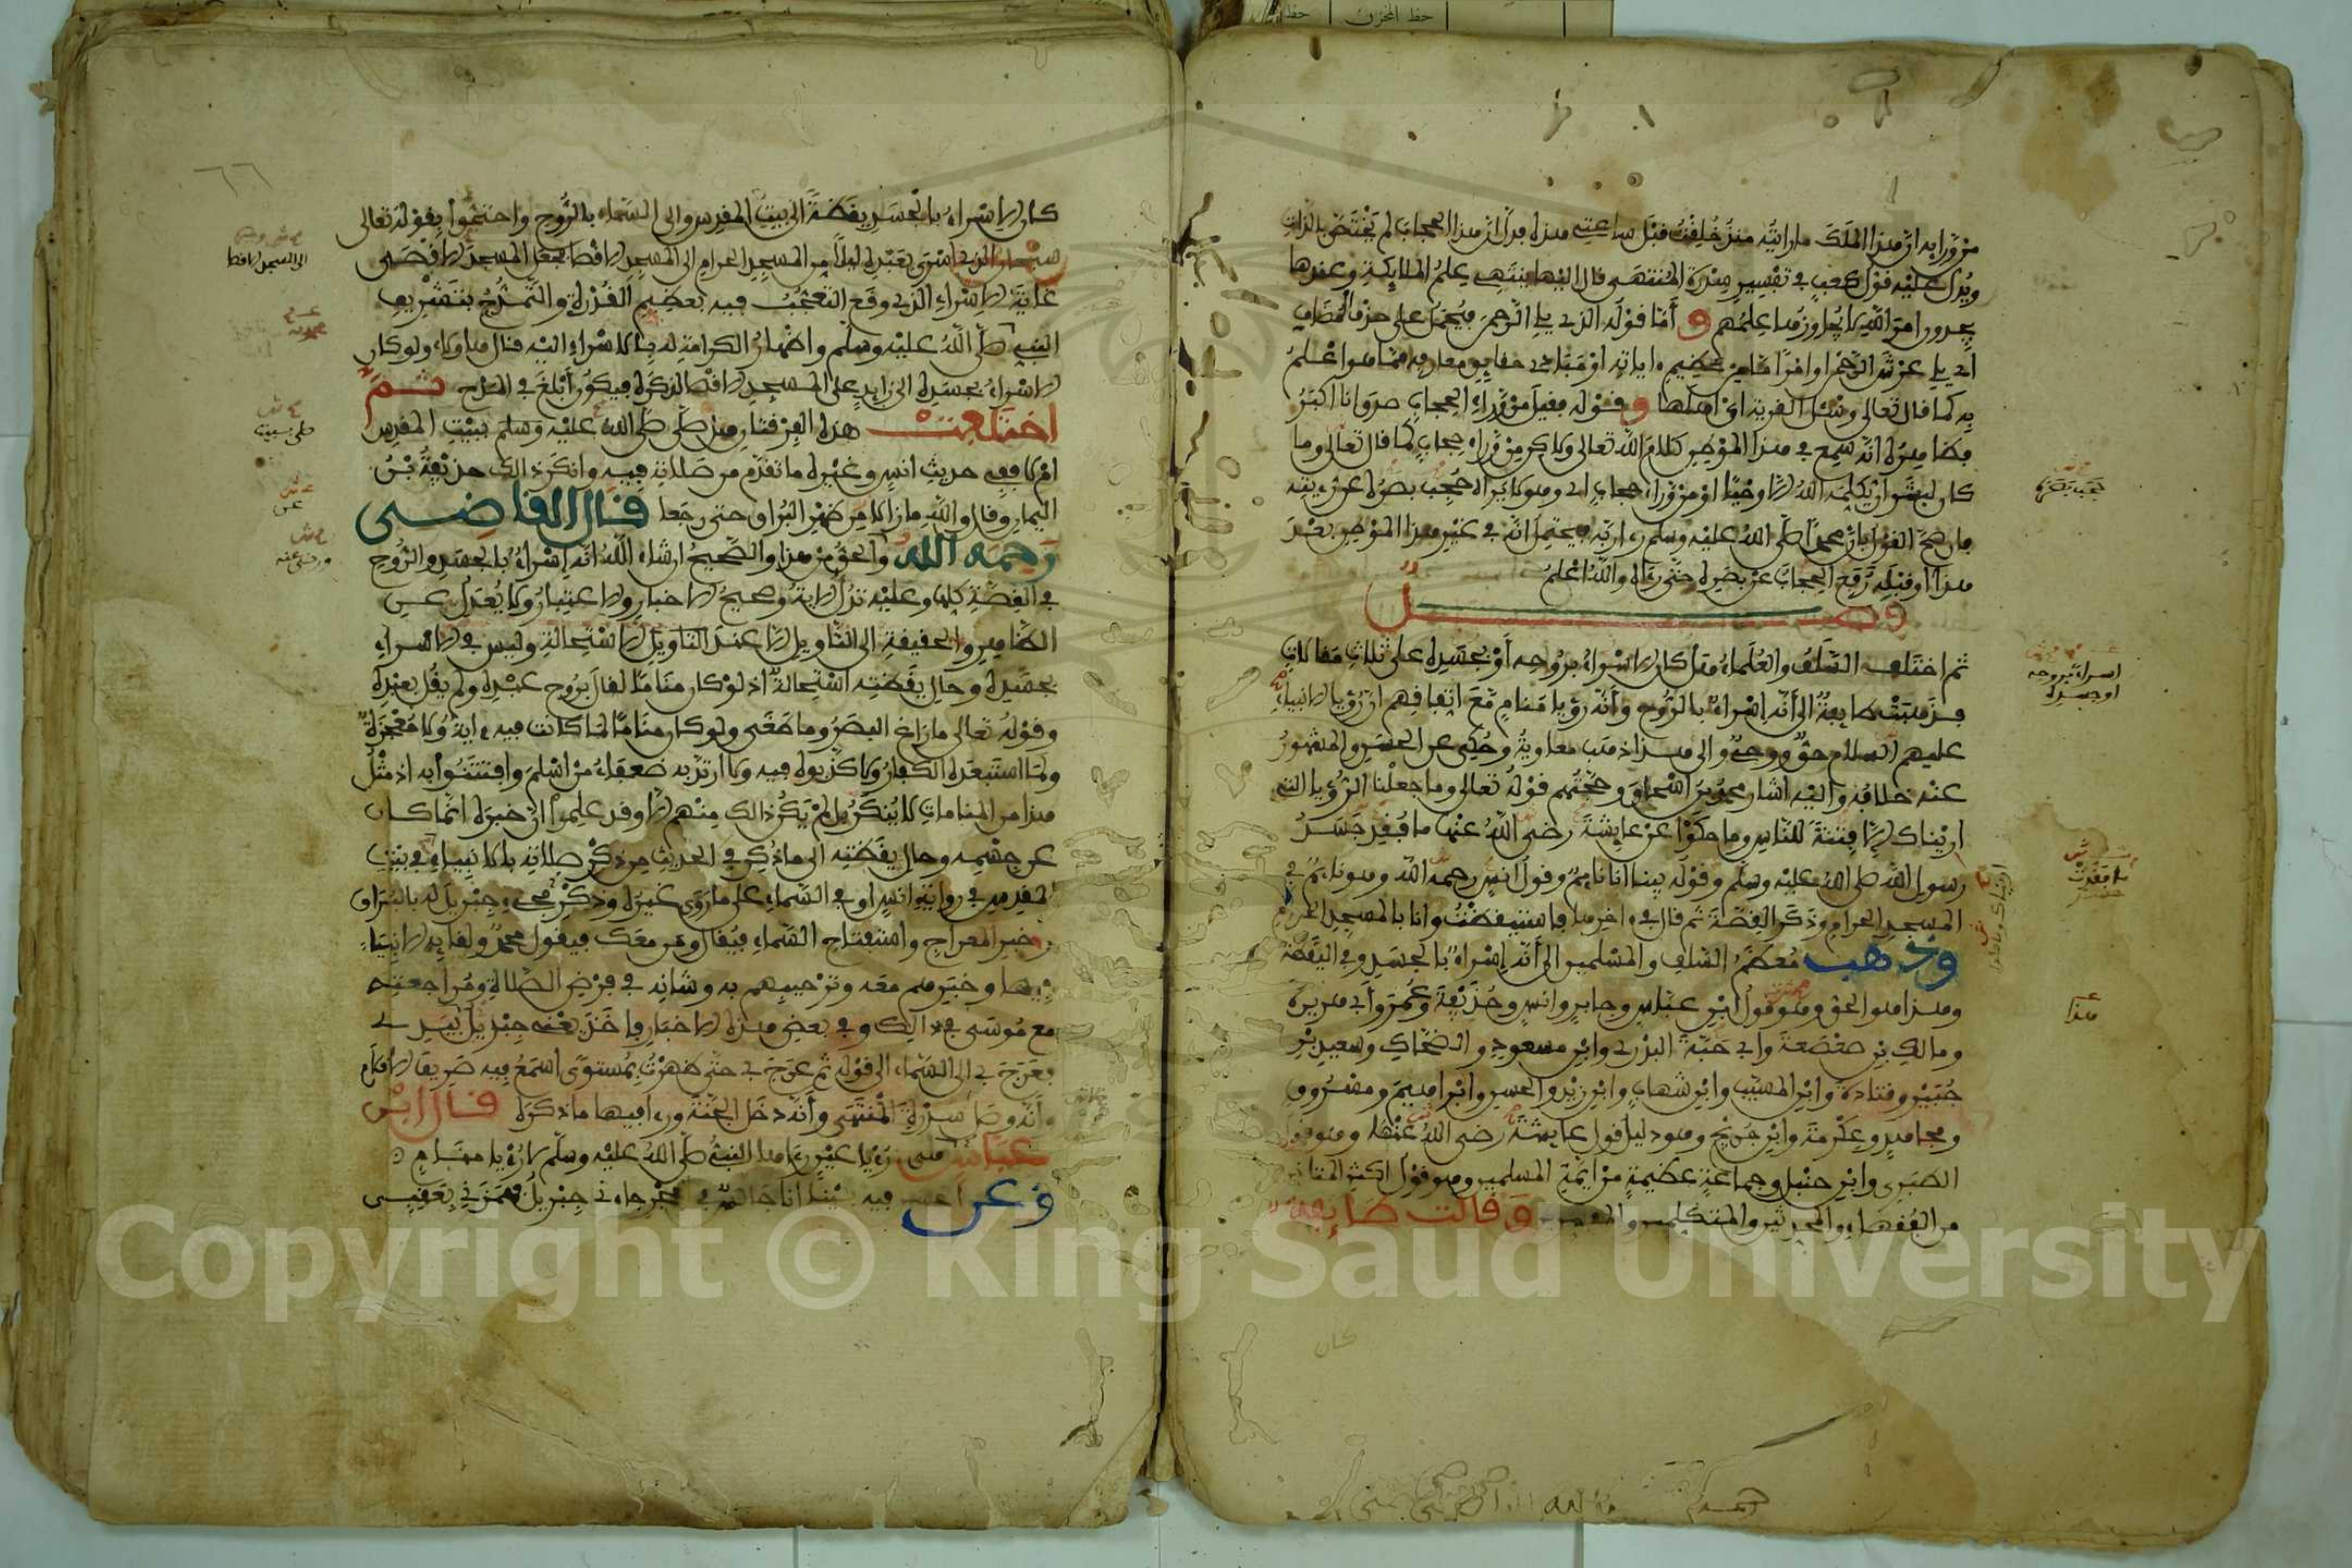 من ورائه ان هذا الملك ما رايته منذ خلقت قبل ساعتي هذه فدل ان هذا الحجاب لم يختص بالذات
ويدل عليه قول كعب في تفسير سدرة المنتهى قال اليها ينتهي علم الملائكة وعندها
يجدون امر الله لا يجاوزها علمهم و أما قوله الذي يلي الرحمن فيحمل على حذف المضاف
اي يلي عرش الرحمن او امرا ما من عظيم اياته او مبادي حقايق معارفه مما هو اعلم
به كما قال تعالى وسئل القرية اي اهلها و قوله فقيل من وراء الحجاب صدق انا اكبر
فظاهره انه سمع في هذا الموطن كلام الله تعالى ولاكن من وراء حجاب كما قال تعالى وما
كان لبشر ان يكلمه الله الا وحيا او من وراء حجاب اي وهو لا يراه حجب بصره عن رءيته
فان صح القول بان محمدا صلى الله عليه وسلم رءا ربه فيحتمل انه في غير هذا الموطن بعد
هذا او قبله رفع الحجاب عن بصره حتى رءاه والله اعلم
فصل
ثم اختلف السلف والعلماء هل كان الاسراء بروحه أو بجسده على ثلاث مقالات
فذهبت طايفة الى أنه اسراء بالروح وأنه رؤيا منام مع اتفاقهم ان رؤيا الانبياء
عليهم السلام حق ووحي والى هذا ذهب معاوية وحكي عن الحسن والمشهور
عنه خلافه واليه اشار محمد بن اسحاق وحجتهم قوله تعالى وما جعلنا الرؤيا التي
اريناك الا فتنة للناس وما حكوا عن عايشة رضي الله عنها ما فقد جسد
رسول الله صلى الله عليه وسلم وقوله بينا انا نايم وقول انس رحمه الله وهو نايم في
المسجد الحرام وذكر القصة ثم قال في اخرها فاستيقظت وانا بالمسجد الحرام
وذهب معظم السلف والمسلمين الى أنه اسراء بالجسد وفي اليقظة
وهذا هو الحق وهو قول ابن عباس وجابر وانس وحذيفة وعمر وأبي هريرة
ومالك بن صعصعة وابي حبة البدري وابن مسعود والضحاك وسعيد بن
جبير وقتادة وابن المسيب وابن شهاب وابن زيد والحسن وابراهيم ومسروق
ومجاهد وعكرمة وابن جريج وهو دليل قول عايشة رضي الله عنها وهو قول
الطبري وابن حنبل وجماعة عظيمة من ايمة المسلمين وهو قول اكثر المتاخرين
من الفقهاء والمحدثين والمتكلمين والمفسرين وقالت طايفة
اسراءبروحه
او جسده
هذا
كان
٦٦
كان الاسراء بالجسد يقظة الى بيت المقدس والى السماء بالروح واحتجوا بقوله تعالى
سبحان الذي اسرى بعبده ليلا من المسجد الحرام الى المسجد الاقصا فجعل المسجد الاقصى
غاية الاسراء الذي وقع التعجب فيه بعظيم القدرة والتمدح بتشريف
النبي صلى الله عليه وسلم واظهار الكرامة له بالاسراء اليه قال هاولاء ولو كان
الاسراء بجسده الى زايد على المسجد الاقصا لذكره فيكون أبلغ في المدح ثم
اختلفت هذه الفرقتان هل صلى صلى الله عليه وسلم ببيت المقدس
ام لا ففي حديث انس وغيره ما تقدم من صلاته فيه وانكر ذالك حذيفة بن
اليمان وقال والله ما زالا من ظهر البراق حتى رجعا قال القاضي
رحمه الله والحق من هذا والصحيح ان شاء الله انه اسراء بالجسد والروح
في القصة كلها وعليه تدل الاية وصحيح الاخبار والاعتبار ولا يعدل عن
الظاهر والحقيقة الى التاويل الا عند التاويل الاستحالة وليس في الاسراء
بجسده وحال يقظته استحالة اذ لو كان مناما لقال بروح عبده ولم يقل بعبده
وقوله تعالى ما زاغ البصر وما طغى ولو كان مناما لما كانت فيه ءاية ولا معجزة
ولما استبعده الكفار ولا كذبوه فيه ولا ارتد به ضعفاء من اسلم وافتتنوا به اذ مثل
هذا من المنامات لا ينكر بل لم يكن ذالك منهم الا وقد علموا ان خبره انما كان
عن جسمه وحال يقظته الى ما ذكر في الحديث من ذكر صلاته بالانبياء في بيت
المقدس في رواية انس او في السماء على ما روى غيره وذكر مجيء جبريل له بالبراق
وخبر المعراج واستفتاح السماء فيقال ومن معك فيقول محمد ولقايه الانبياء
فيها وخبرهم معه وترحيبهم به وشانه في فرض الصلاة ومراجعته
مع موسى في ذالك وفي بعض هذه الاخبار فاخذ يعني جبريل بيدي
فعرج بي الى السماء الى قوله ثم عرج بي حتى ظهرت بمستوى اسمع فيه صريف الاقلام
وأنه وصل سدرة المنتهى وأنه دخل الجنة ورءا فيها ما ذكره قال ابن
عباس هي رؤيا عين رءاها النبي صلى الله عليه وسلم لا رؤيا منام
وعن الحسن فيه بينا أنا جالس في الحجر جاءني جبريل فهمزني بعقبي
الى المسجد الاقصا